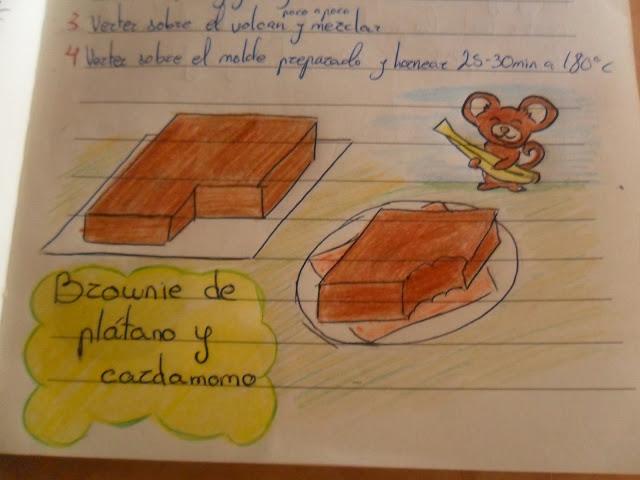 poco a poco
3 Verter sobre el volcan y mezclar
4 Verter sobre el molde preparado y hornear 25-30min a 180°c
Brownie de
plátano y
cardamomo